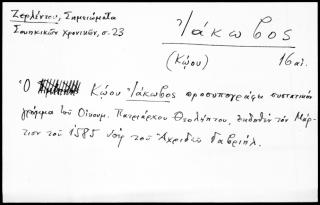 Ζερλέντου, Σημειώματα
Σουηκικῶν χρονικῶν, σ. 23
Ἰάκωβος
(Κώου)
16 αἰ.
Ὁ Κώου Ἰάκωβος προσυπογράφει συστατικὸν
γράμμα τοῦ Οἰκουμ. Πατριάρχου Θεολήπτου, ἐκδοθὲν τὸν Μάρ-
τιον τοῦ 1585 ὑπὲρ τοῦ Ἀχριδῶν Γαβριήλ.